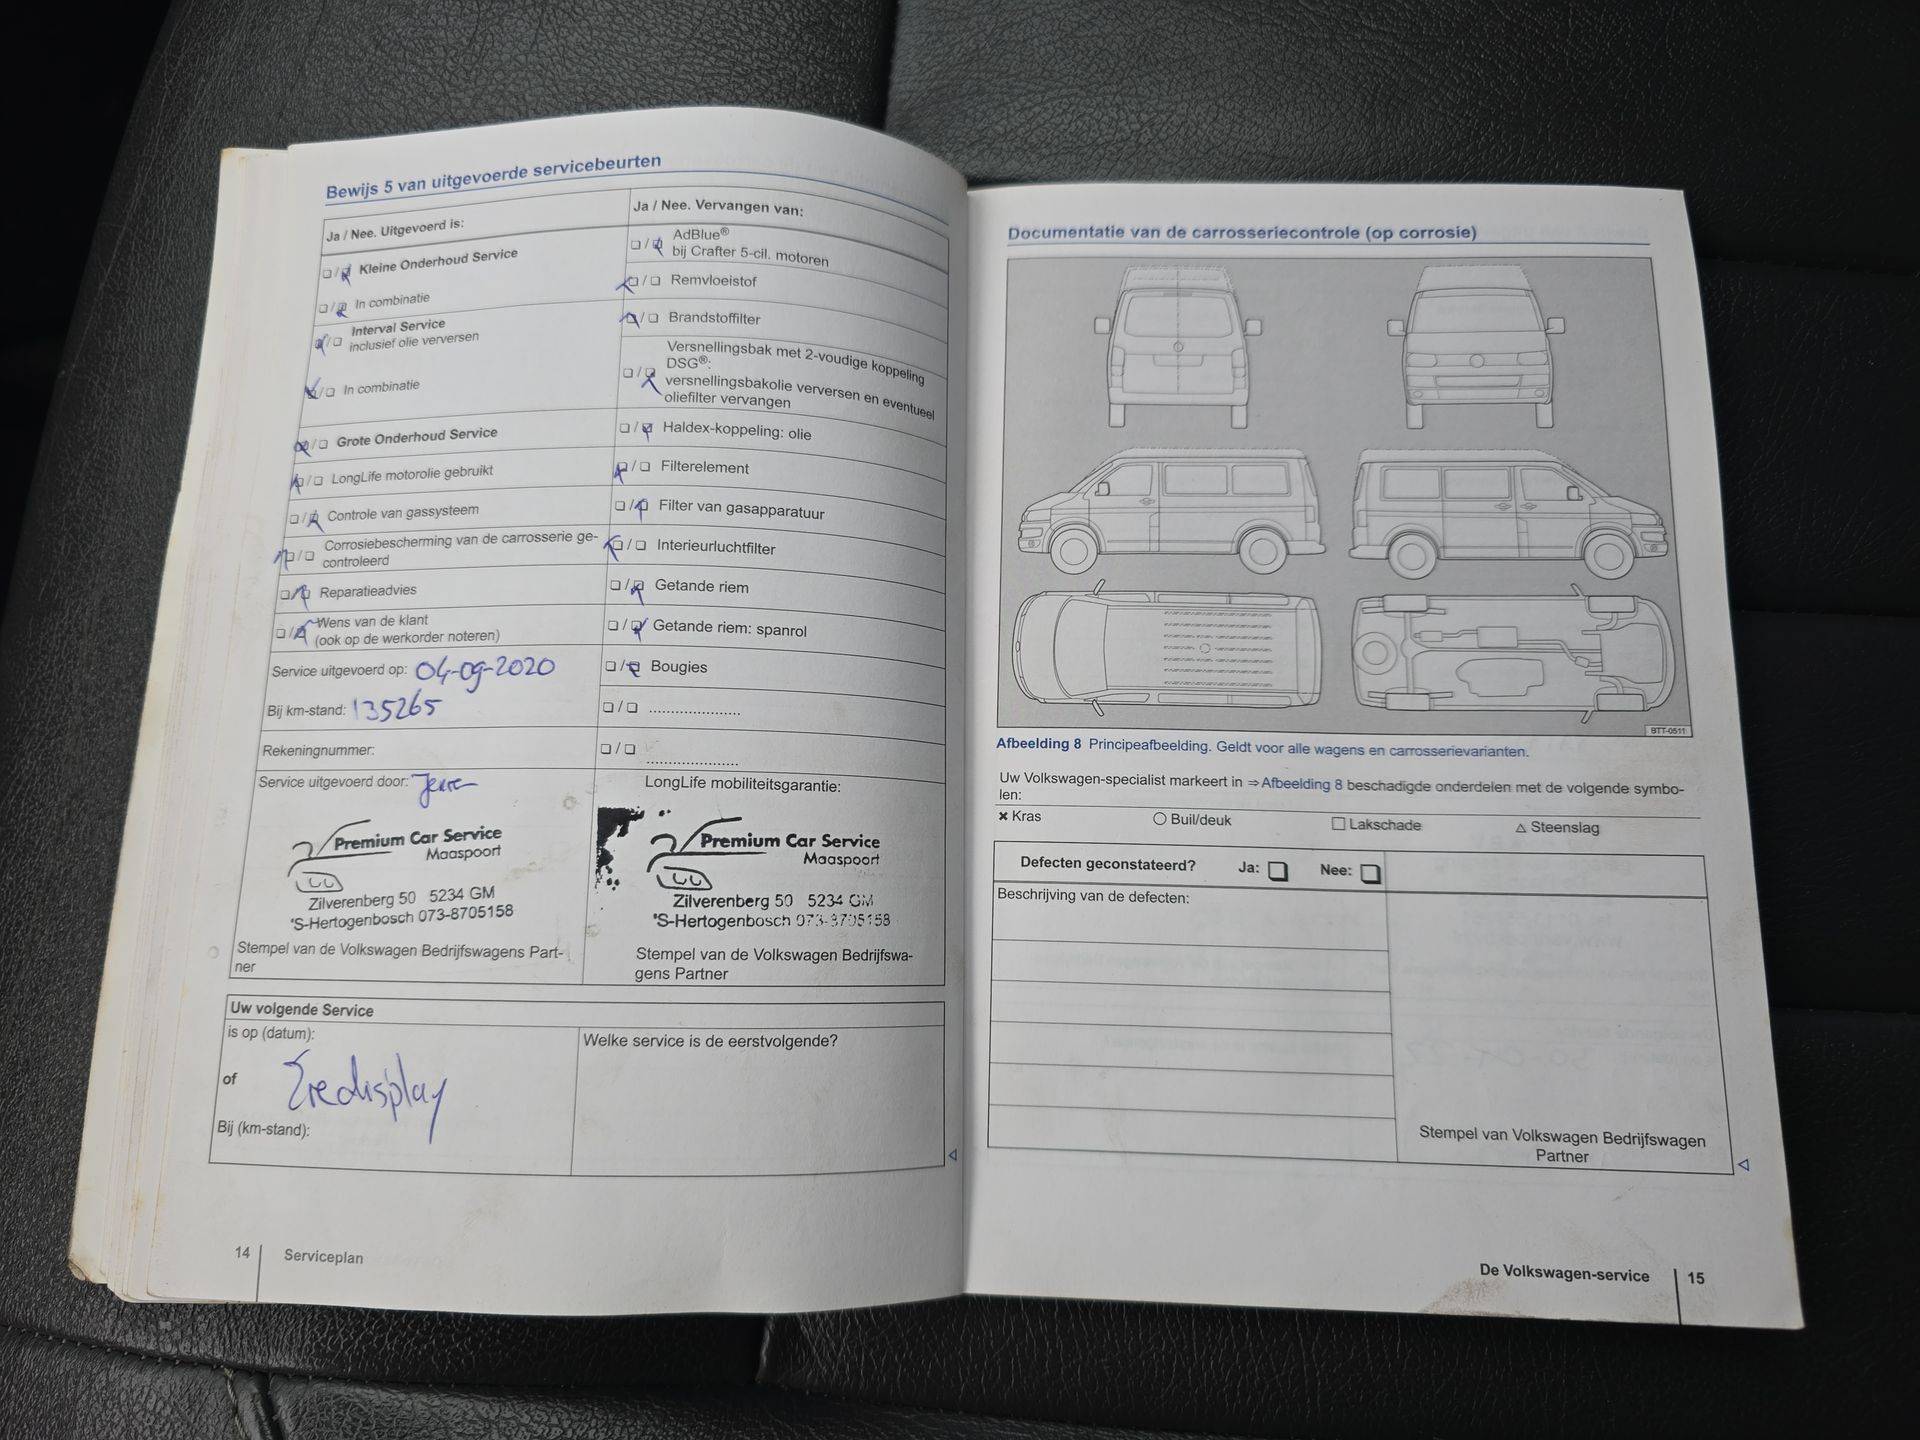 Bewijs 5 van uitgevoerde servicebeurten
Ja / Nee. Uitgevoerd is:
❏ / ❏ Kleine Onderhoud Service
❏ / ❏ In combinatie
❏ / ❏ Interval Service
inclusief olie verversen
❏ / ❏ In combinatie
❏ / ❏ Grote Onderhoud Service
❏ / ❏ LongLife motorolie gebruikt
❏ / ❏ Controle van gassysteem
❏ / ❏ Corrosiebescherming van de carrosserie ge-
controleerd
❏ / ❏ Reparatieadvies
❏ / ❏ Wens van de klant
(ook op de werkorder noteren)
Service uitgevoerd op: 04-09-2020
Bij km-stand: 135265
Rekeningnummer:
Service uitgevoerd door:
Premium Car Service
Maaspoort
Zilverenberg 50 5234 GM
'S-Hertogenbosch 073-8705158
Stempel van de Volkswagen Bedrijfswagens Part-
ner
Ja / Nee. Vervangen van:
❏ / ❏ AdBlue®
bij Crafter 5-cil. motoren
❏ / ❏ Remvloeistof
❏ / ❏ Brandstoffilter
Versnellingsbak met 2-voudige koppeling
❏ / ❏ DSG®:
versnellingsbakolie verversen en eventueel
oliefilter vervangen
❏ / ❏ Haldex-koppeling: olie
❏ / ❏ Filterelement
❏ / ❏ Filter van gasapparatuur
❏ / ❏ Interieurluchtfilter
❏ / ❏ Getande riem
❏ / ❏ Getande riem: spanrol
❏ / ❏ Bougies
❏ / ❏ .....................
❏ / ❏ .....................
LongLife mobiliteitsgarantie:
Premium Car Service
Maaspoort
Zilverenberg 50 5234 GM
'S-Hertogenbosch 073-8705158
Stempel van de Volkswagen Bedrijfswa-
gens Partner
Uw volgende Service
is op (datum):
of
Zie display
Bij (km-stand):
Welke service is de eerstvolgende?
14 Serviceplan
Documentatie van de carrosseriecontrole (op corrosie)
BTT-0511
Afbeelding 8 Principeafbeelding. Geldt voor alle wagens en carrosserievarianten.
Uw Volkswagen-specialist markeert in ⇒ Afbeelding 8 beschadigde onderdelen met de volgende symbo-
len:
× Kras ○ Buil/deuk □ Lakschade △ Steenslag
Defecten geconstateerd? Ja: ❏ Nee: ❏
Beschrijving van de defecten:
Stempel van Volkswagen Bedrijfswagen
Partner
De Volkswagen-service 15